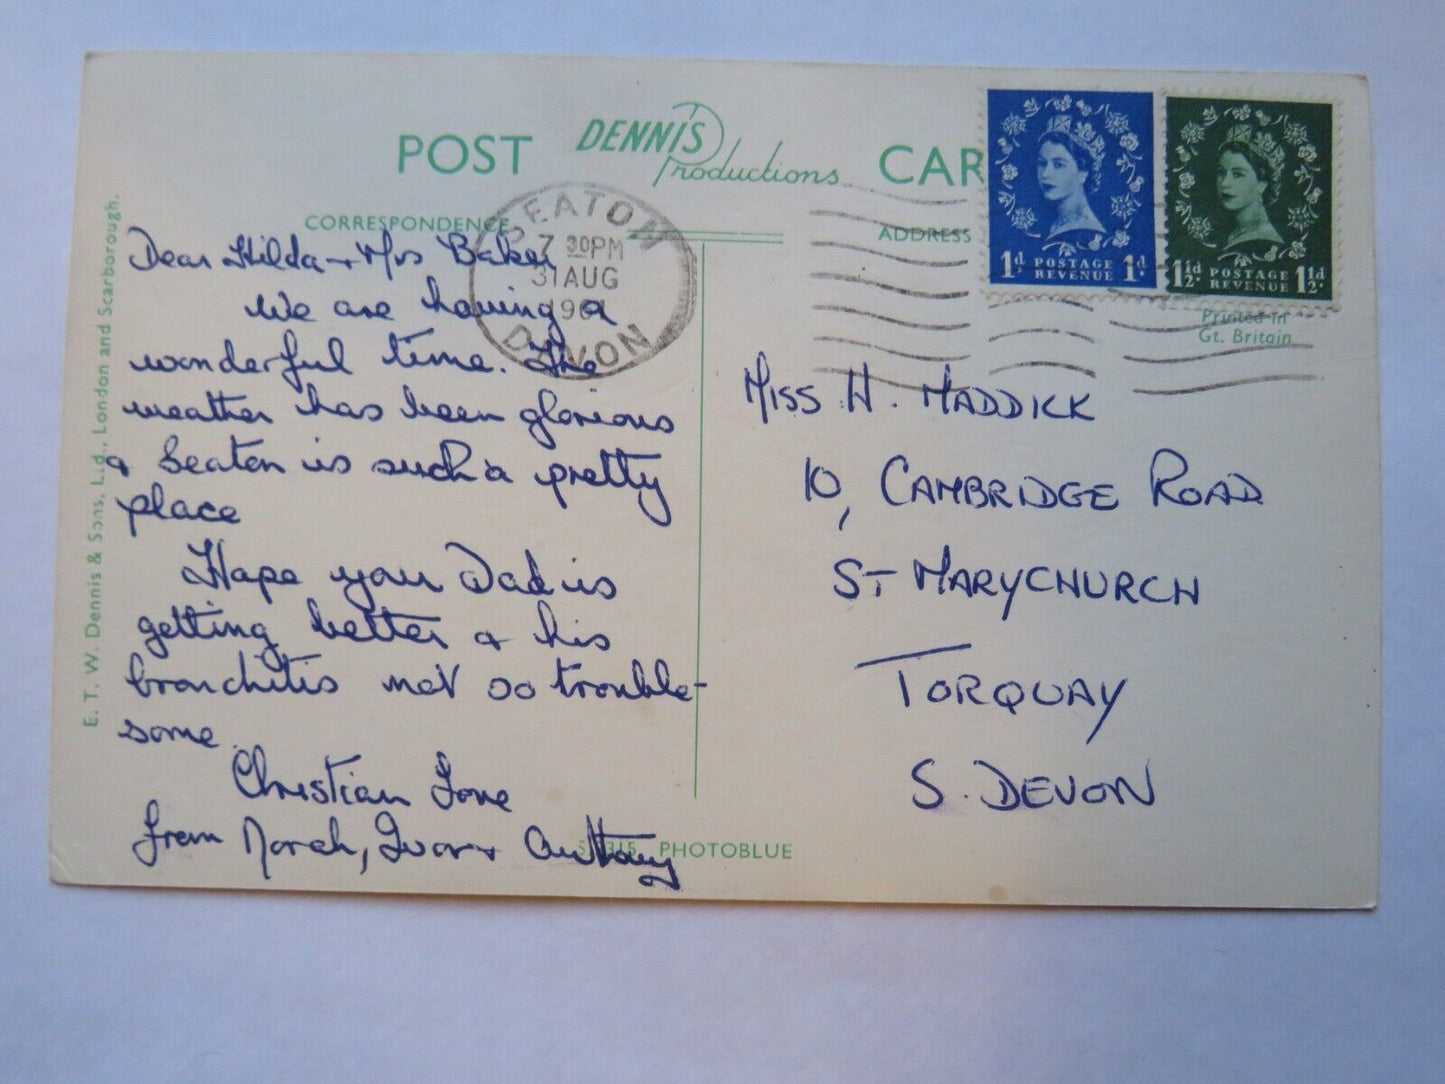 POST DENNIS Productions CAR
CORRESPONDENCE
ADDRESS
SEATON
7 30PM
31 AUG
1961
DEVON
1d. POSTAGE REVENUE 1d.
1½d. POSTAGE REVENUE 1½d.
Printed in
Gt. Britain
E. T. W. Dennis & Sons, Ltd., London and Scarborough.
Dear Hilda + Mrs Baker
We are having a
wonderful time. The
weather has been glorious
& Seaton is such a pretty
place
Hope your Dad is
getting better & his
bronchitis not so trouble-
some.
Christian Love
from Norah, Ivor + Anthony
MISS H. MADDICK
10, CAMBRIDGE ROAD
ST MARYCHURCH
TORQUAY
S. DEVON
315 PHOTOBLUE